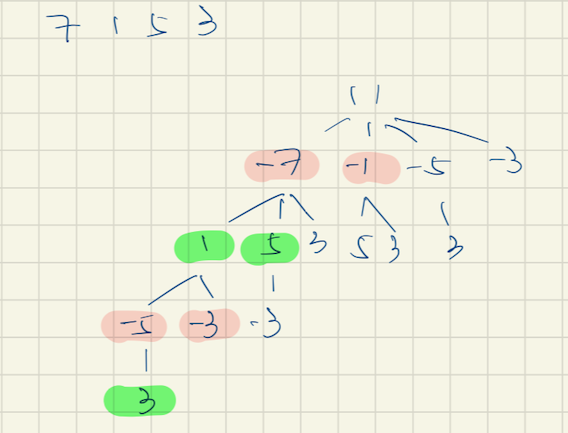 7 1 5 3
11
-7 -1 -5 -3
1 5 3 5 3 3
-5 -3 -3
3